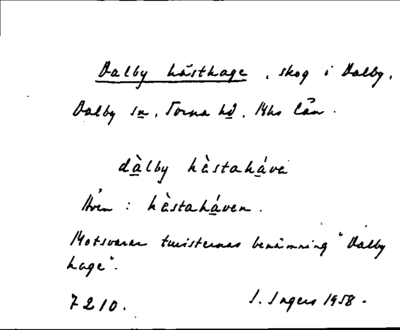 Dalby hästhage, skog i Dalby,
Dalby sn, Torna hd, Mhs län.
dàlby hèstahávа
Även : hèstaháven.
Motsvarar turisternas benämning "Dalby
hage".
7210. I. Ingers 1958.